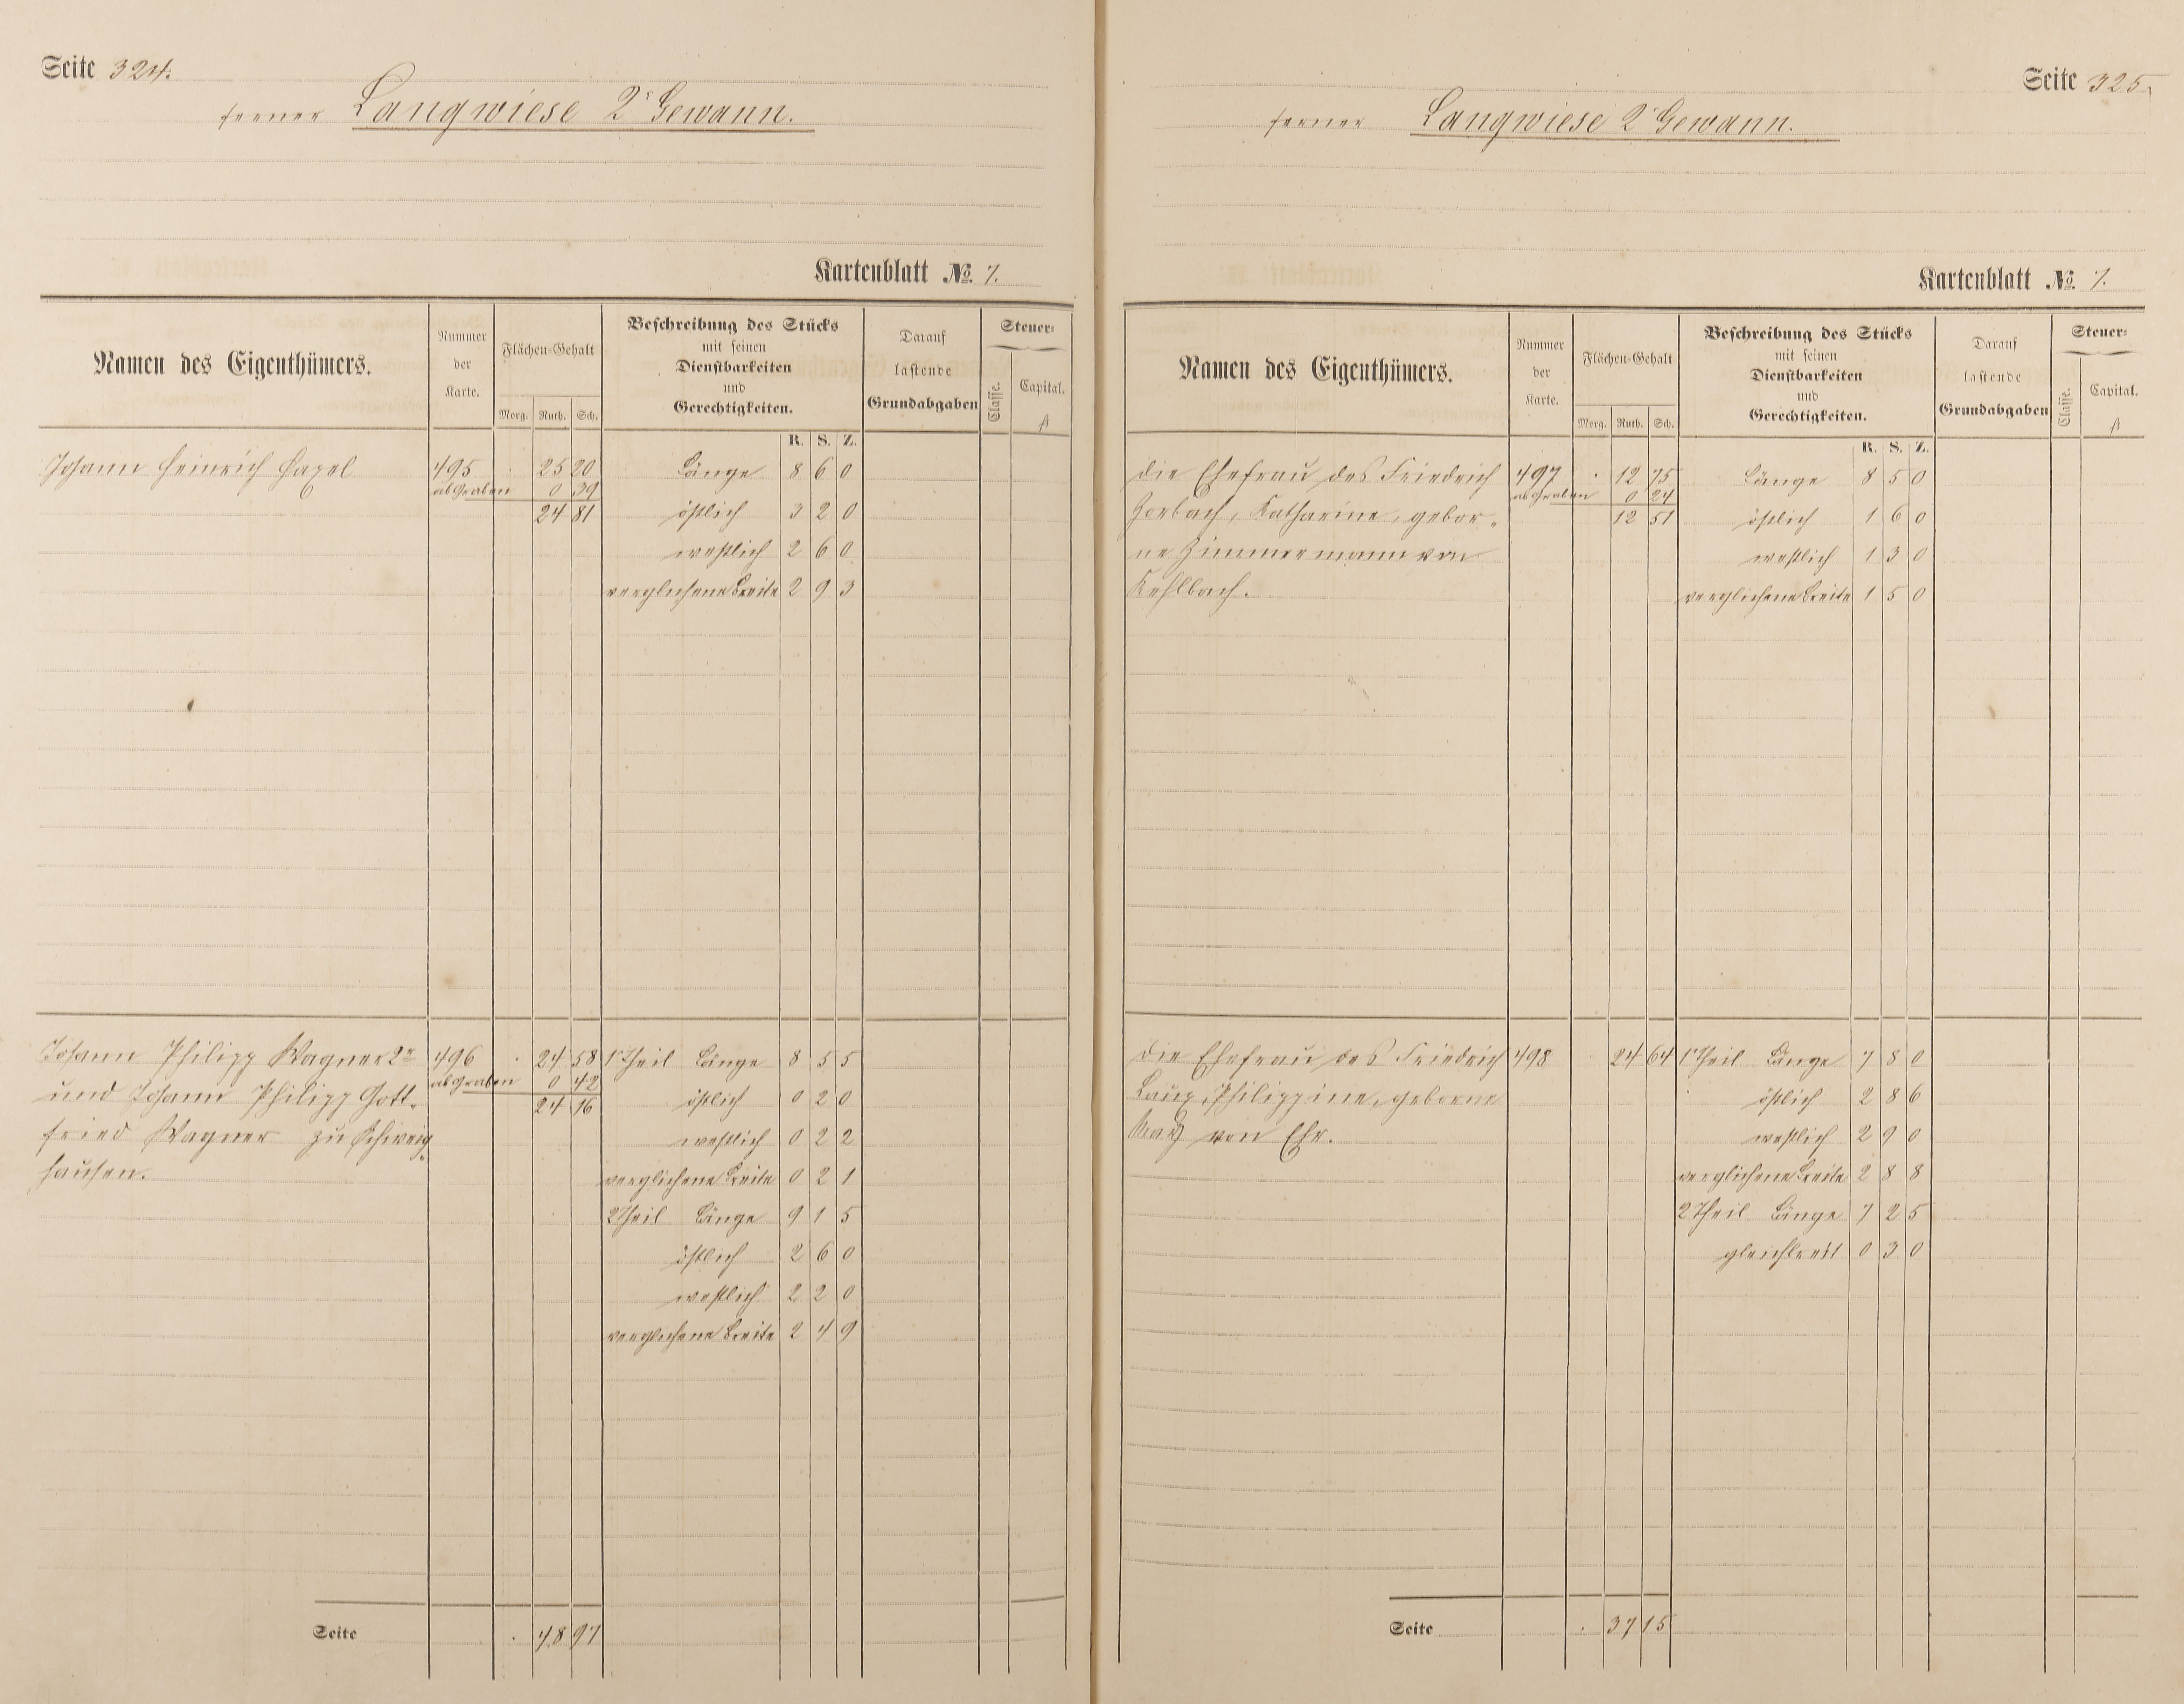 Seite 324.
ferner Langwiese 2r Gewann.
Kartenblatt No. 7.
Namen des Eigenthümers.
Nummer der Karte.
Flächen-Gehalt
Morg. Ruth. Sch.
Beschreibung des Stücks
mit seinen
Dienstbarkeiten
und
Gerechtigkeiten.
Darauf
lastende
Grundabgaben
Steuer-
Classe.
Capital.
fl
R. S. Z.
Johann Heinrich 495 . 25 20 Länge 8 6 0
ab Graben 0 39
24 81 östlich 3 2 0
westlich 2 6 0
verglichene Breite 2 9 3
Johann Philipp Wagner 2r 496 . 24 58 1r Theil Länge 8 5 5
ab Graben 0 42
und Johann Philipp Gott- 24 16 östlich 0 2 0
fried Wagner zu Schweig- westlich 0 2 2
hausen. verglichene Breite 0 2 1
2 Theil Länge 9 1 5
östlich 2 6 0
westlich 2 2 0
verglichene Breite 2 4 9
Seite . 48 97
Seite 325.
ferner Langwiese 2r Gewann.
Kartenblatt No. 7.
Namen des Eigenthümers.
Nummer der Karte.
Flächen-Gehalt
Morg. Ruth. Sch.
Beschreibung des Stücks
mit seinen
Dienstbarkeiten
und
Gerechtigkeiten.
Darauf
lastende
Grundabgaben
Steuer-
Classe.
Capital.
fl
R. S. Z.
die Ehefrau des Friedrich 497 . 12 75 Länge 8 5 0
ab Graben 0 24
Zorbach, Katharine, gebor- 12 51 östlich 1 6 0
ne Zimmermann von westlich 1 3 0
Kehlbach. verglichene Breite 1 5 0
die Ehefrau des Friedrich 498 . 24 64 1r Theil Länge 7 8 0
Philippine, geborne östlich 2 8 6
von Ehr. westlich 2 9 0
verglichene Breite 2 8 8
2 Theil Länge 7 2 5
gleichbreit 0 3 0
Seite . 37 15